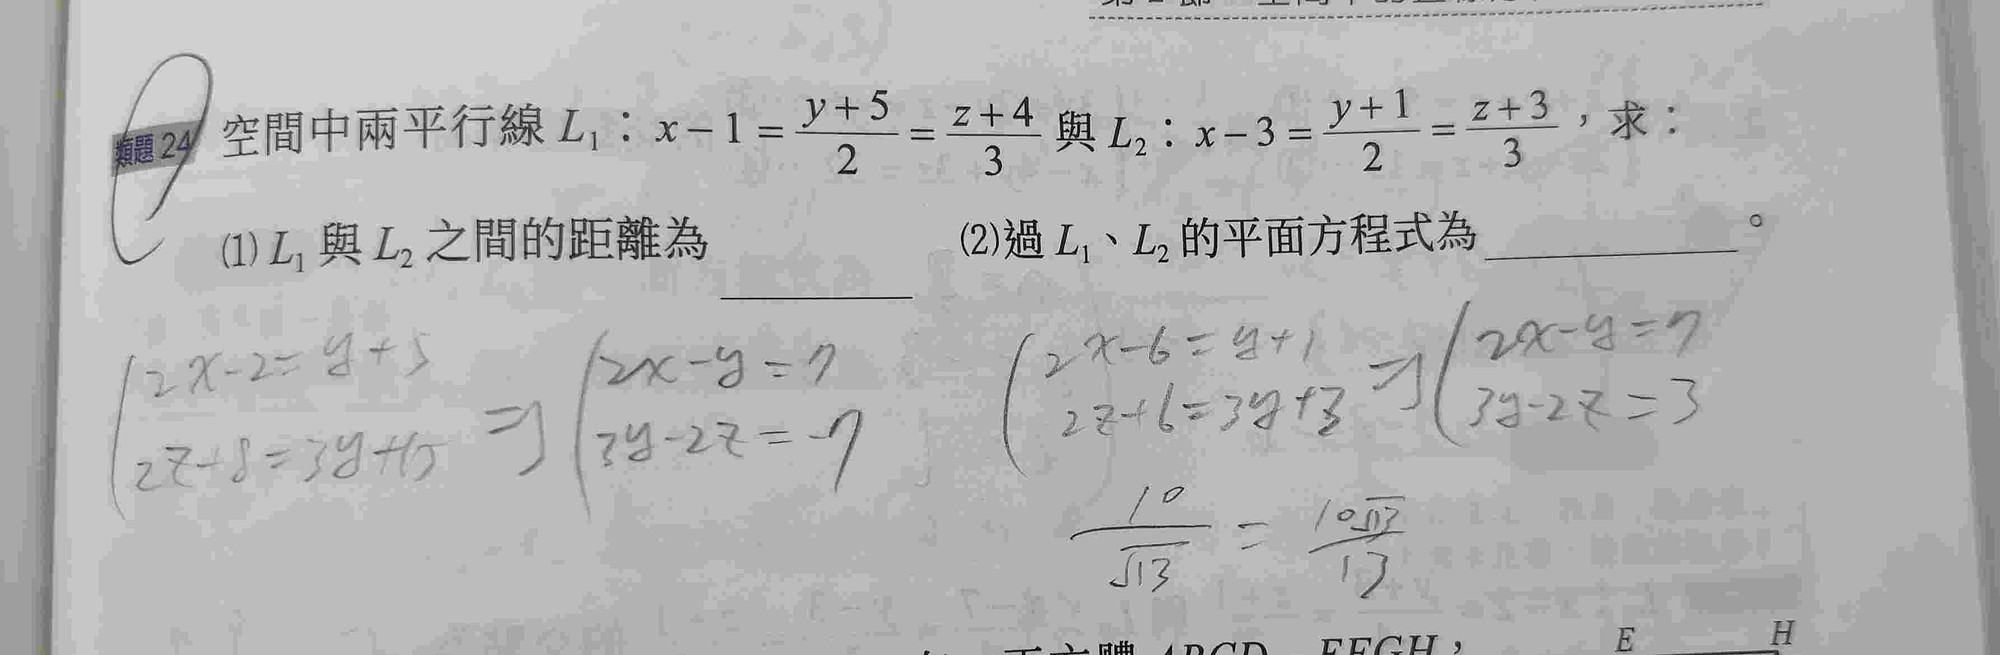 類題 24 空間中兩平行線 L₁：x－1 = (y+5)/2 = (z+4)/3 與 L₂：x－3 = (y+1)/2 = (z+3)/3，求：
(1) L₁ 與 L₂ 之間的距離為 ________ (2)過 L₁、L₂ 的平面方程式為 ________。
{2x-2=y+5 ⇒ {2x-y=7
{2z+8=3y+15 ⇒ {3y-2z=-7
{2x-6=y+1 ⇒ {2x-y=7
{2z+6=3y+3 ⇒ {3y-2z=3
10/√13 = 10√13/13
EFGH，
E H